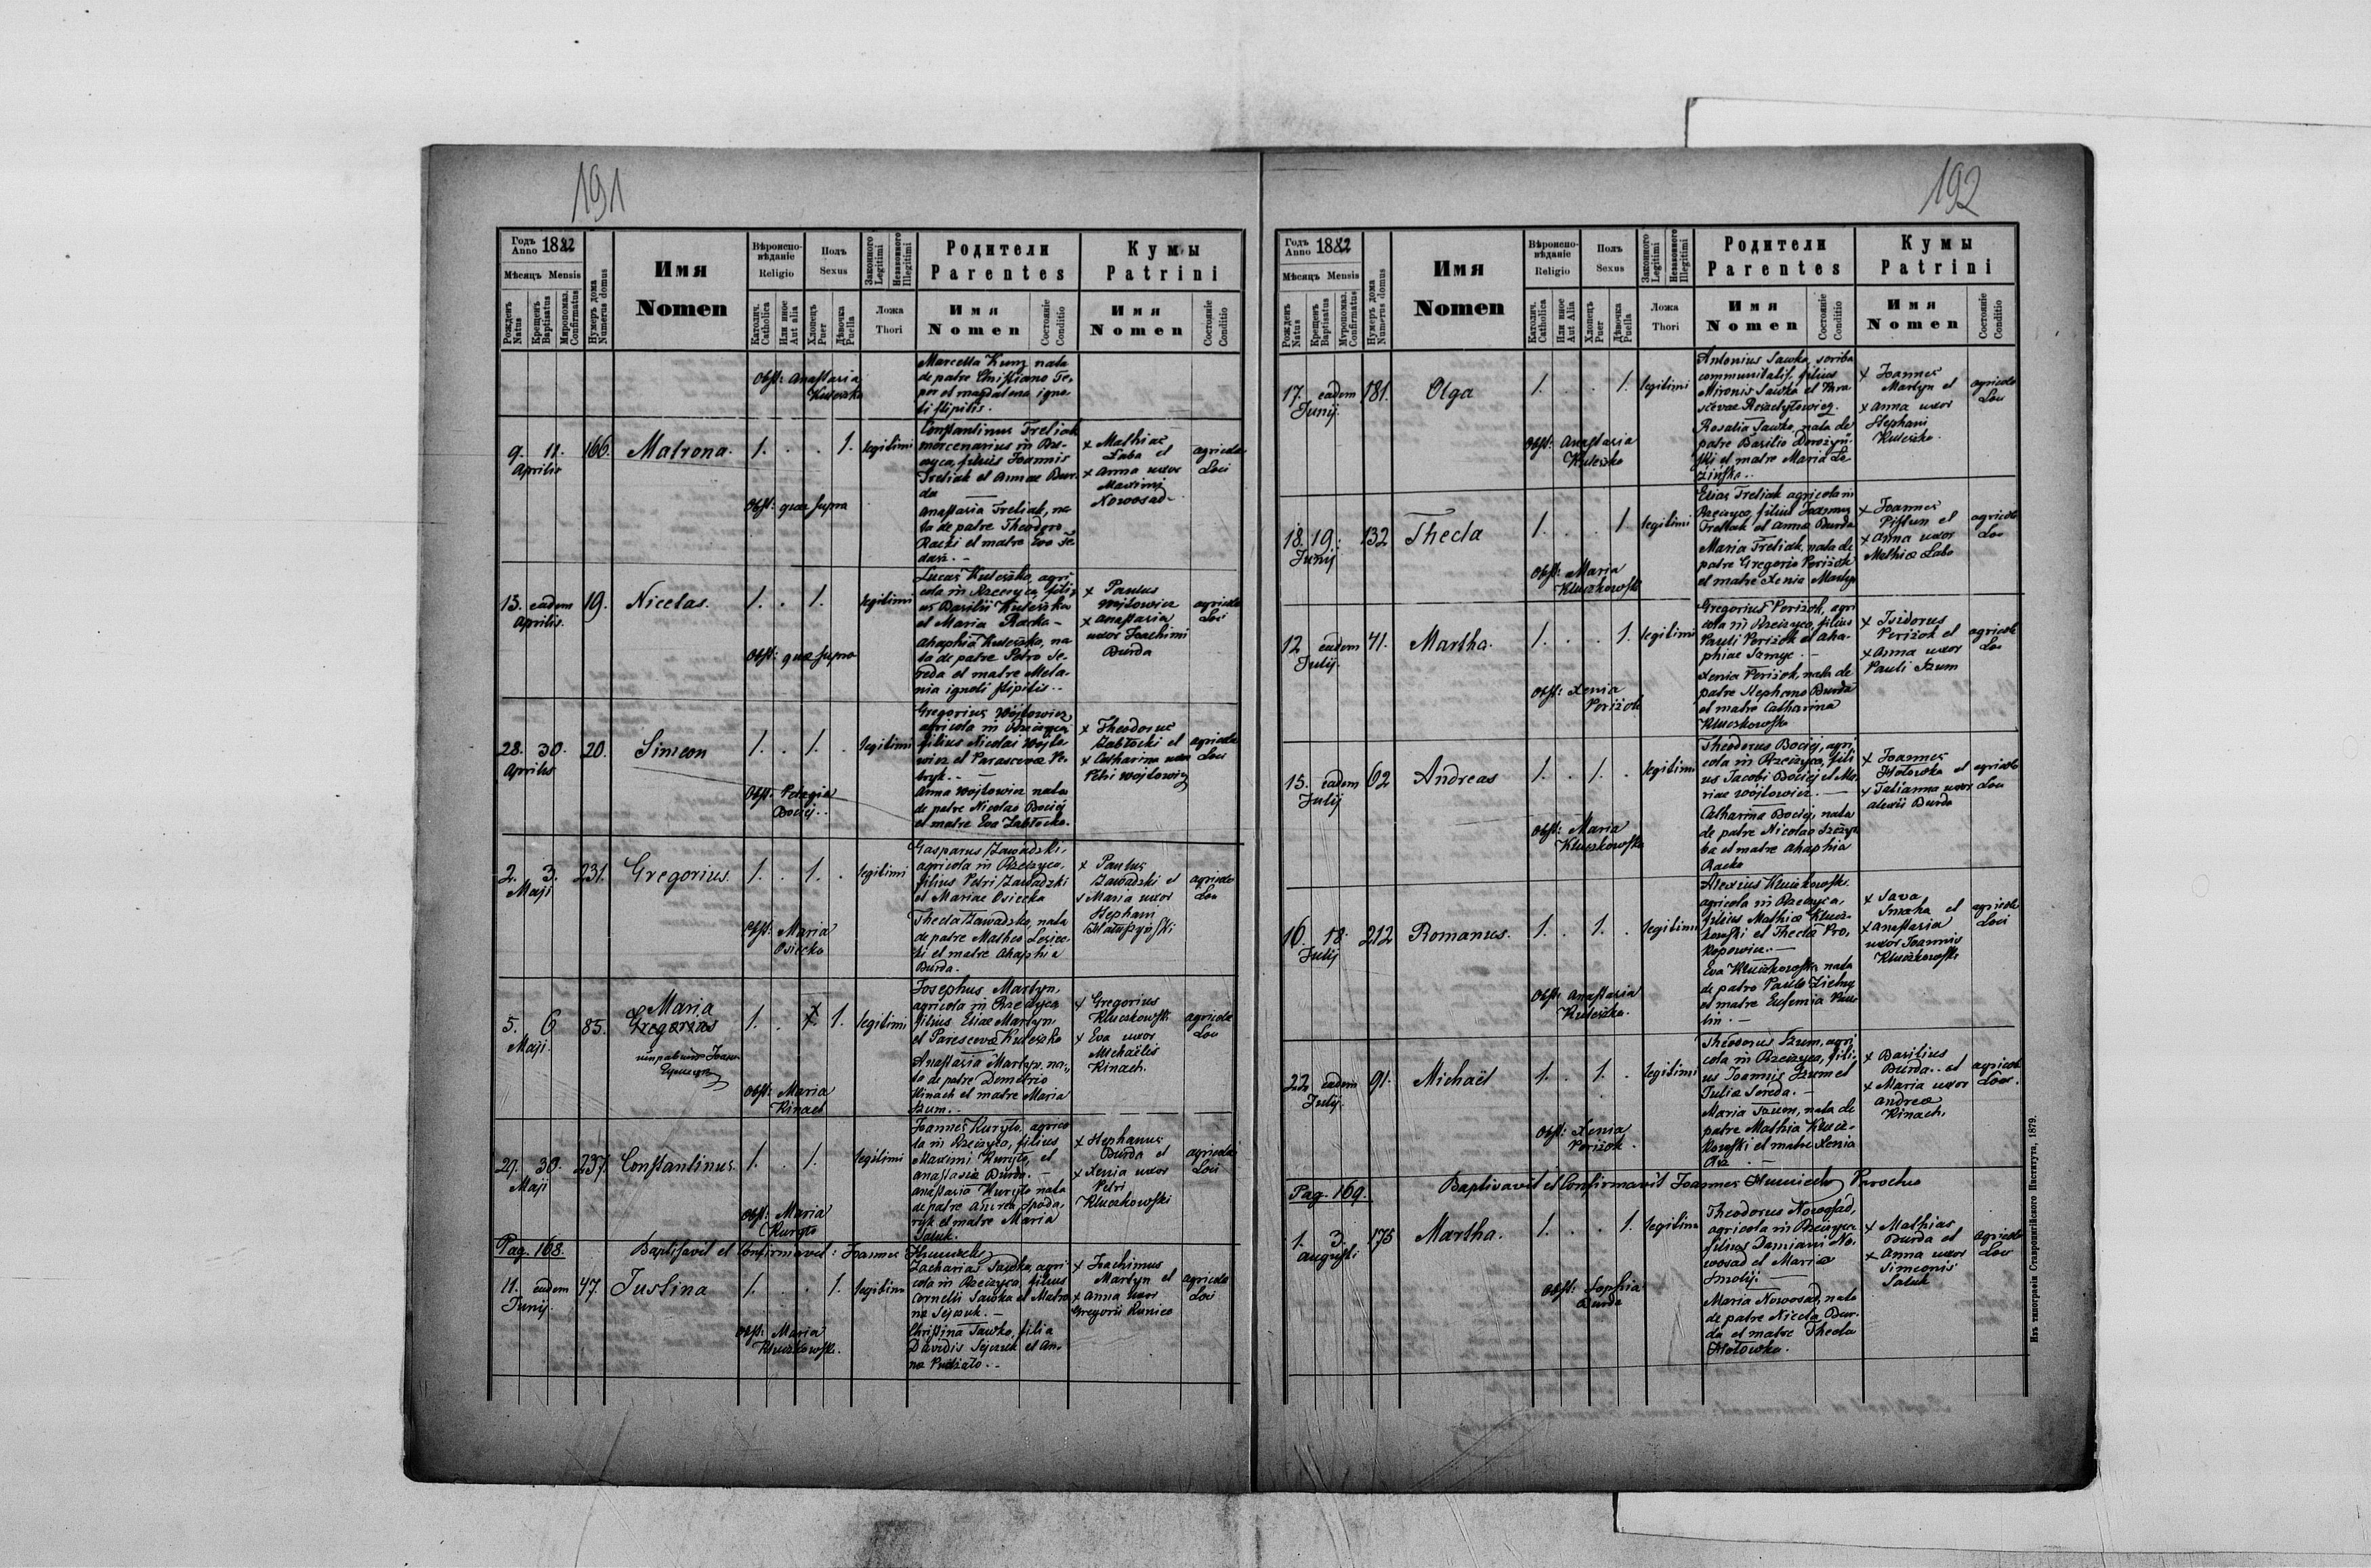 191
Годъ Anno 1882
Мѣсяцъ Mensis
Рожденъ Natus
Крещенъ Baptisatus
Мѵропомаз. Confirmatus
Нумеръ дома Numerus domus
Имя
Nomen
Вѣроиспо-
вѣданіе
Religio
Католич. Catholica
Или иное Aut alia
Полъ
Sexus
Хлопецъ Puer
Дѣвочка Puella
Законного Legitimi
Незаконного Illegitimi
Ложа
Thori
Родители
Parentes
Имя
Nomen
Состояніе Conditio
Кумы
Patrini
Имя
Nomen
Состояніе Conditio
Obst: Anastasia
Kuleszka
Marcella Kunz nata
de patre Christiano Te-
per et Magdalena igno-
ti stipitis.
9. 11. 166. Matrona. 1. . . 1. legitimi
Aprilis
Obst: quae supra
Constantinus Treliak
mercenarius in Rze-
czyca, filius Joannis
Treliak et Annae Bur-
da
Anastasia Treliak, na-
ta de patre Theodoro
Racki et matre Eva
x Mathias
Laba et
x Anna uxor
Maximi
Nowosad
agricolae
Loci
15. eadem 19. Nicetas. 1. . 1. legitimi
Aprilis.
Obst: quae supra
Lucas Kuleszka, agri-
cola in Rzeczyca, fili-
us Basilii Kuleszka
et Maria Racka
Ahaphia Kuleszka, na-
ta de patre Petro Se-
reda et matre Mela-
nia ignoti stipitis..
x Paulus
Wojtowicz
x Anastasia
uxor Joachimi
Burda
agricolae
Loci
28. 30. 20. Simeon 1. . 1. . legitimi
Aprilis
Obst: Pelagia
Bociej..
Gregorius Wojtowicz
agricola in Rzeczyca
filius Nicolai Wojto-
wicz et Parascevae Pe-
tryk..
Anna Wojtowicz nata
de patre Nicolao Bociej
et matre Eva Zabłocka.
x Theodorus
Zabłocki et
x Catharina uxor
Petri Wojtowicz
agricolae
Loci
2. 3. 231. Gregorius. 1. . 1. . legitimi
Maji
Obst: Maria
Osiecka
Gasparus Zawadzki,
agricola in Rzeczyca
filius Petri Zawadzki
et Mariae Osiecka
Thecla Zawadzka, nata
de patre Matheo
et matre Ahaphia
Burda.
x Paulus
Zawadzki et
x Maria uxor
Stephani
agricolae
Loci
5. 6. 85. Maria
Gregorius 1. . 1. legitimi
Maji.
Obst: Maria
Kinach
Josephus Martyn,
agricola in Rzeczyca
filius Eliae Martyn,
et Parasceva Kuleszka
Anastasia Martyn, na-
ta de patre Demetrio
Kinach et matre Maria
Szum..
x Gregorius
Kluczkowski
x Eva uxor
Michaëlis
Kinach.
agricolae
Loci
29. 30. 237. Constantinus. 1. . 1. legitimi
Maji
Obst: Maria
Kuryło
Joannes Kuryło, agrico-
la in Rzeczyca, filius
Maximi Kuryło, et
Anastasia Burda.
Anastasia Kuryło nata
de patre Andrea Spoda-
ryk et matre Maria
x Stephanus
Burda et
x Xenia uxor
Petri
Kluczkowski
agricolae
Loci
Pag. 168. Baptisavit et Confirmavit: Joannes
11. eadem 47. Justina 1. . . 1. legitimi
Junij.
Obst: Maria
Kluczkowska.
Zacharias Sawka, agri-
cola in Rzeczyca, filius
Cornelli Sawka et Matro-
na Sejczuk.
Christina Sawka, filia
Davidis Sejczuk et An-
na
x Joachimus
Martyn et
x Anna uxor
Gregorii
agricolae
Loci
192
Годъ Anno 1882
Мѣсяцъ Mensis
Рожденъ Natus
Крещенъ Baptisatus
Мѵропомаз. Confirmatus
Нумеръ дома Numerus domus
Имя
Nomen
Вѣроиспо-
вѣданіе
Religio
Католич. Catholica
Или иное Aut Alia
Полъ
Sexus
Хлопецъ Puer
Дѣвочка Puella
Законного Legitimi
Незаконного Illegitimi
Ложа
Thori
Родители
Parentes
Имя
Nomen
Состояніе Conditio
Кумы
Patrini
Имя
Nomen
Состояніе Conditio
17. eadem 181. Olga 1. . . 1. legitimi
Junij.
Obst: Anastasia
Kuleszka
Antonius Sawka, scriba
communitatis, filius
Mironis Sawka et Para-
scevae
Rosalia Sawka, nata de
patre Basilio
et matre Maria
x Joannes
Martyn et
x Anna uxor
Stephani
Kuleszka.
agricolae
Loci
18. 19. 132 Thecla 1. . . 1 legitimi
Junij
Obst: Maria
Kluczkowska
Elias Treliak agricola in
Rzeczyca, filius Joannis
Treliak et Anna Burda
Maria Treliak, nata de
patre Gregorio Periżok
et matre Xenia Martyn
x Joannes
Pistun et
x Anna uxor
Mathiae Laba
agricolae
Loci
12 eadem 41. Martha. 1. . . 1. legitimi
Julij.
Obst: Xenia
Periżok
Gregorius Periżok, agri-
cola in Rzeczyca, filius
Pauli Periżok et Aha-
phiae
Xenia Periżok, nata de
patre Stephano Burda
et matre Catharina
Kluczkowska
x Isidorus
Periżok et
x Anna uxor
Pauli Szum
agricolae
Loci
15. eadem 62 Andreas 1. . 1. . legitimi
Julij
Obst: Maria
Kluczkowska
Theodorus Bociej, agri-
cola in Rzeczyca, fili-
us Jacobi Bociej et Ma-
riae Wojtowicz.
Catharina Bociej, nata
de patre Nicolao
et matre Ahaphia
Racka
x Joannes
Hołowka et
x Tatianna uxor
Alexii Burda
agricolae
Loci
16. 18. 212 Romanus. 1. . 1. . legitimi
Julij
Obst: Anastasia
Kuleszka.
Alexius Kluczkowski
agricola in Rzeczyca,
filius Mathiae Klucz-
kowski et Thecla Pro-
kopowicz.
Eva Kluczkowska nata
de patre Paulo Zielny
et matre Eufemia
x Sava
Smaha et
x Anastasia
uxor Joannis
Kluczkowski
agricolae
Loci
22 eadem 91. Michaël 1. . 1. . legitimi
Julij.
Obst: Xenia
Periżok.
Theodorus Szum, agri-
cola in Rzeczyca, fili-
us Joannis Szum et
Julia Sereda.
Maria Szum, nata de
patre Mathia Klucz-
kowski et matre Xenia
x Basilius
Burda.. et
x Maria uxor
Andreae
Kinach.
agricolae
Loci.
Pag. 169. Baptisavit et Confirmavit Joannes Parochus
1. 3. 175 Martha. 1. . . 1. legitimi
Augusti
Obst: Sophia
Burda
Theodorus Nowosad,
agricola in Rzeczyca
filius Damiani No-
wosad et Maria
Smolij.
Maria Nowosad, nata
de patre Niceta Bur-
da et matre Thecla
Hołowka.
x Mathias
Burda et
x Anna uxor
Simeonis
agricolae
Loci
Изъ типографіи Ставропигійского Института, 1879.